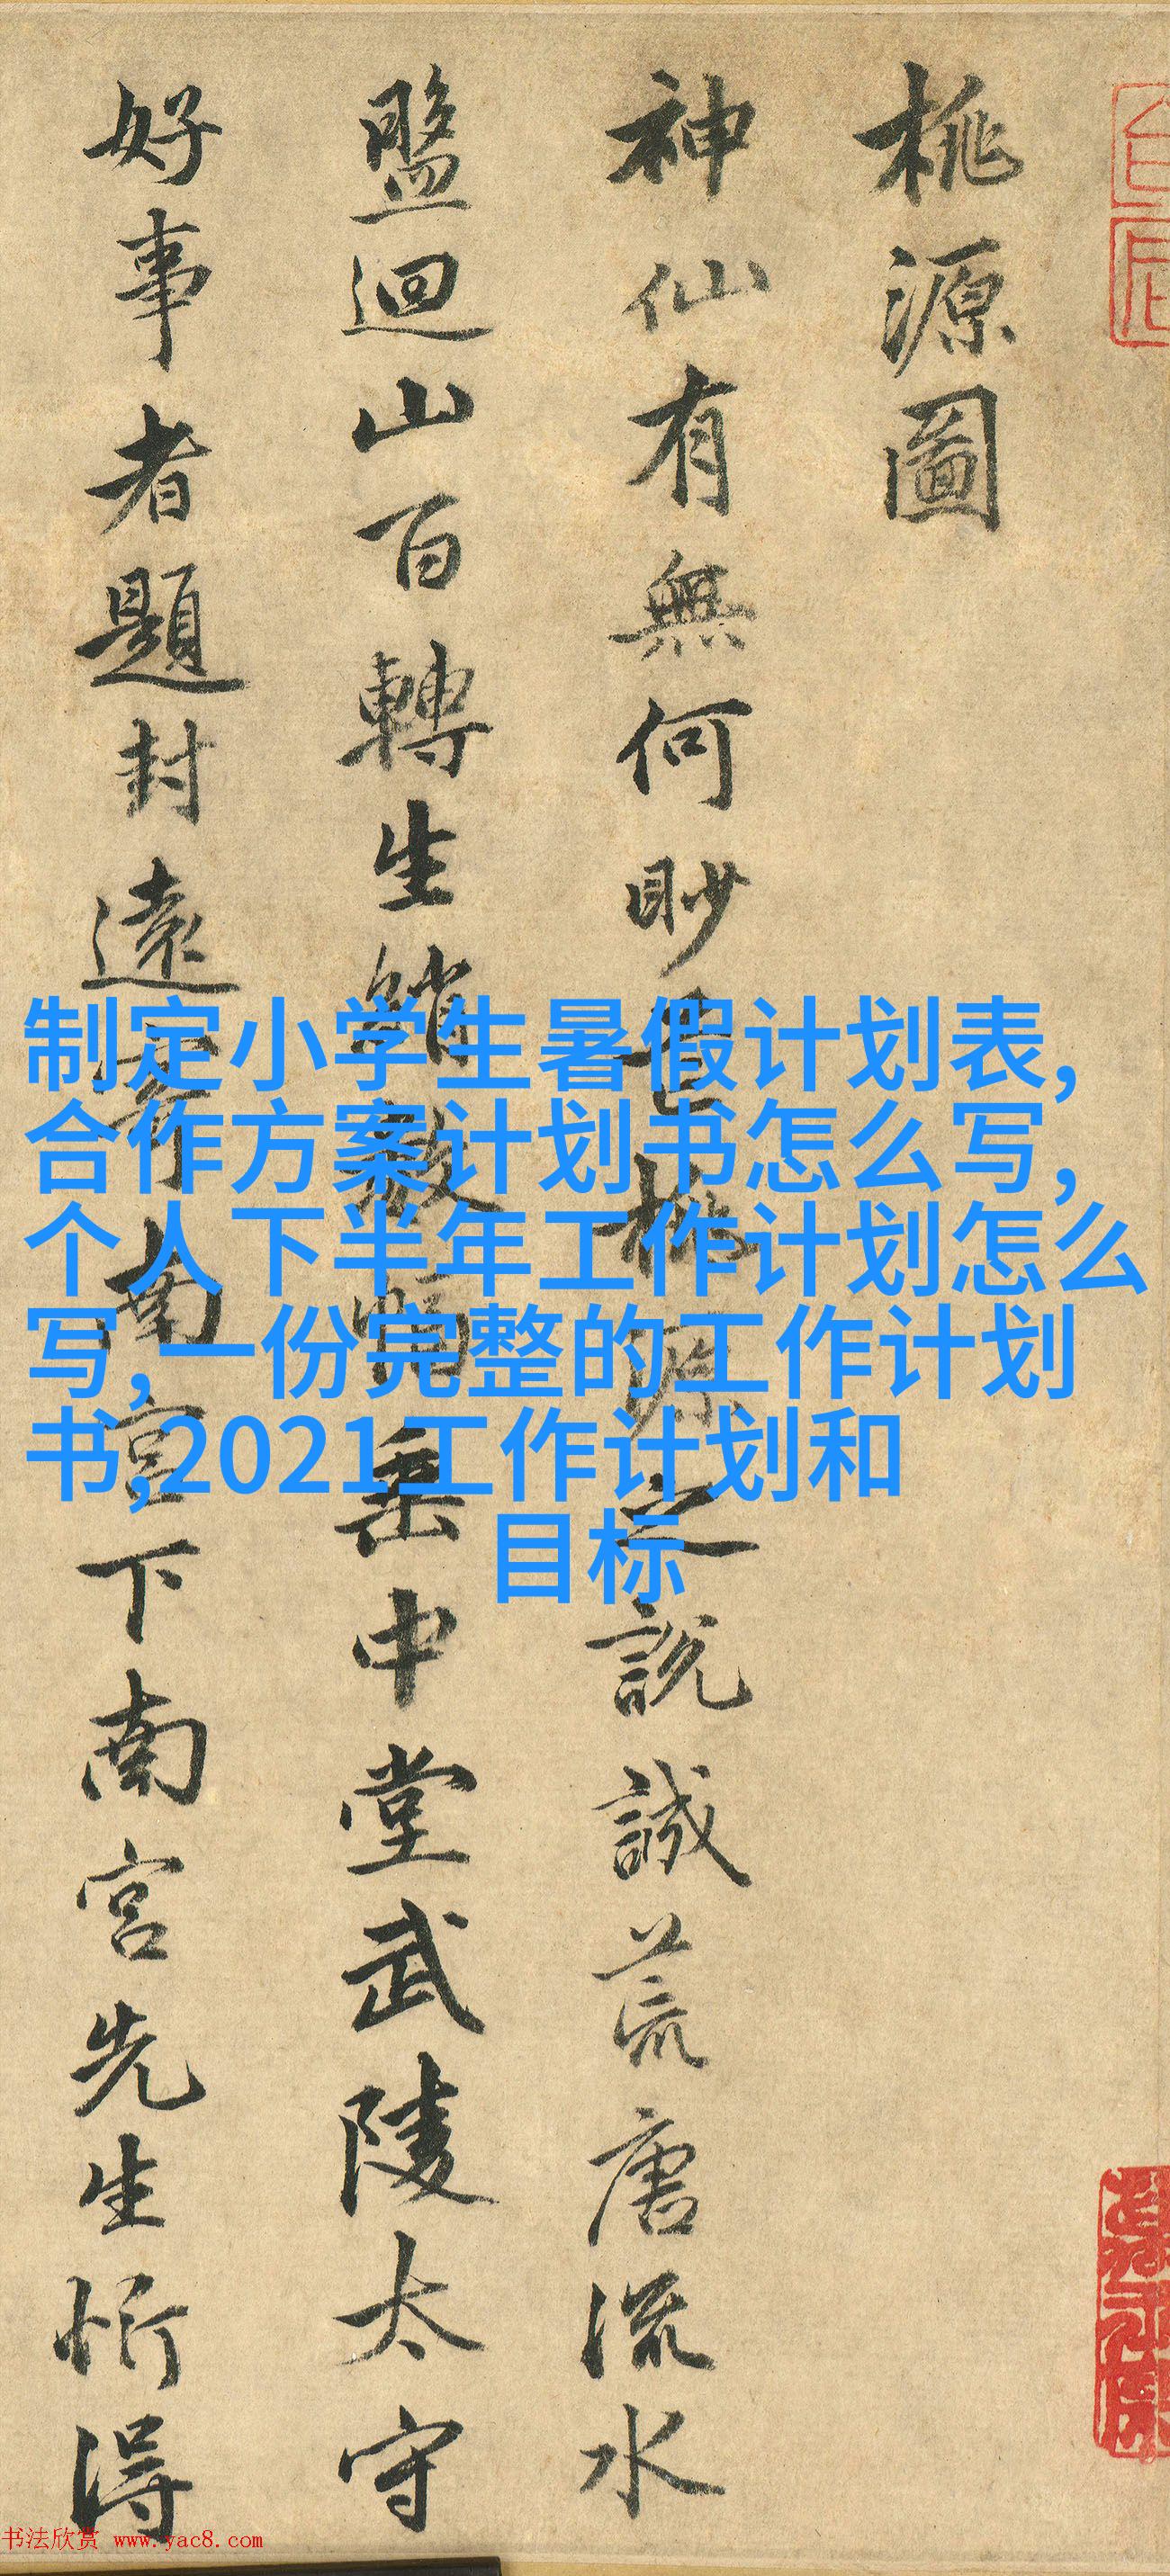 桃源圖
神仙有無何眇芒桃源之說誠荒唐流水
盤迴山百轉生綃數幅垂中堂武陵太守
好事者題封遠寄南宮下南宮先生忻得
制定小学生暑假计划表,
合作方案计划书怎么写,
个人下半年工作计划怎么
写,一份完整的工作计划
书,2021工作计划和
目标
书法欣赏 www.yac8.com